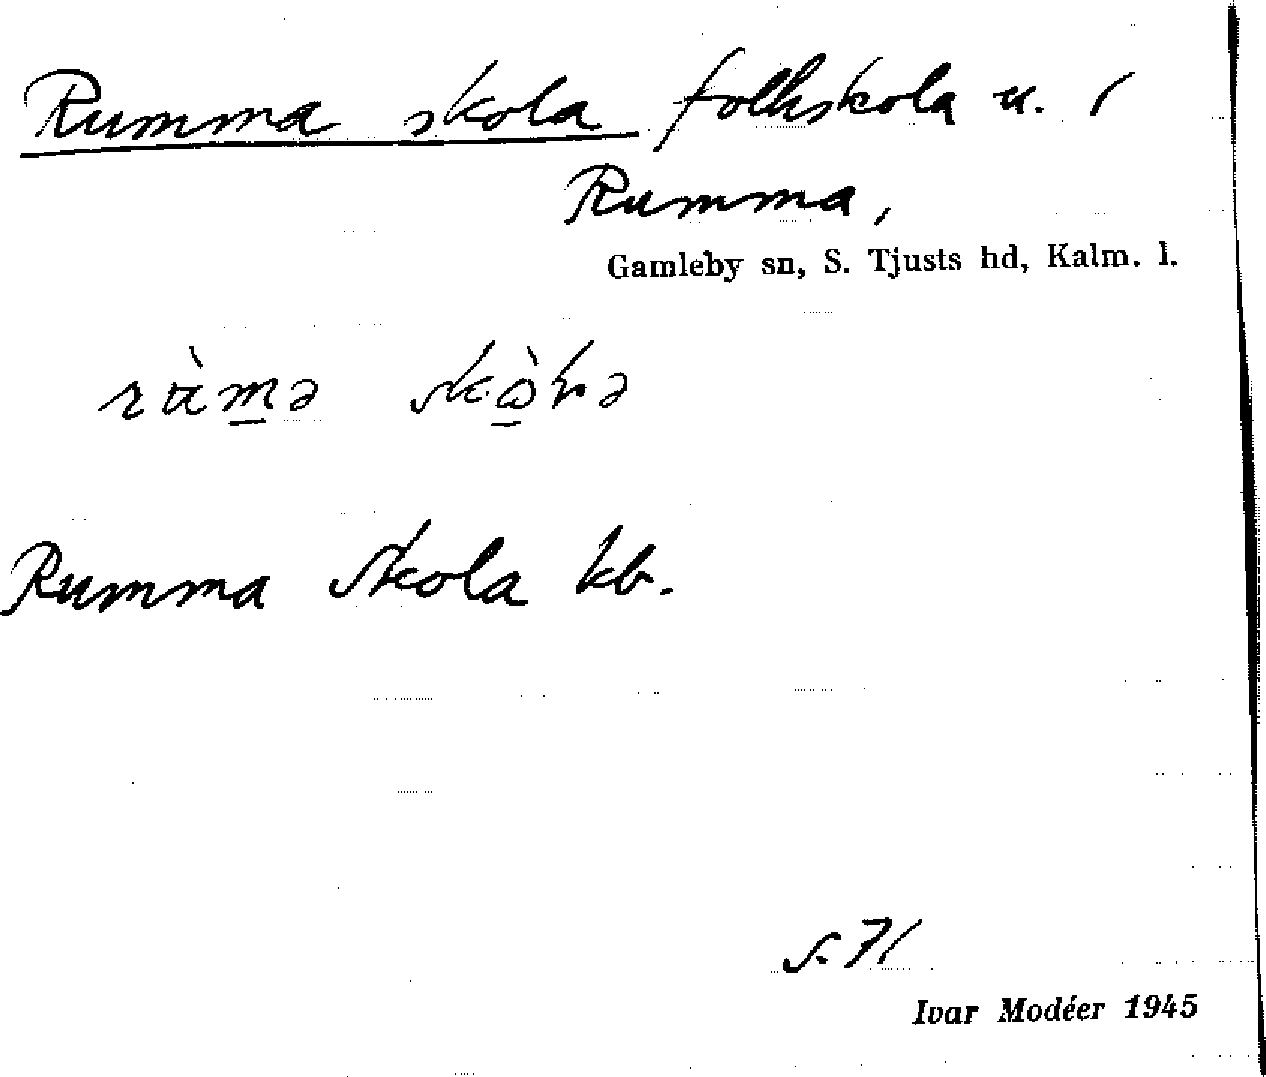 Rumma skola folkskola u. i
Rumma,
Gamleby sn, S. Tjusts hd, Kalm. l.
Rumma skola kb.
s. 71
Ivar Modéer 1945